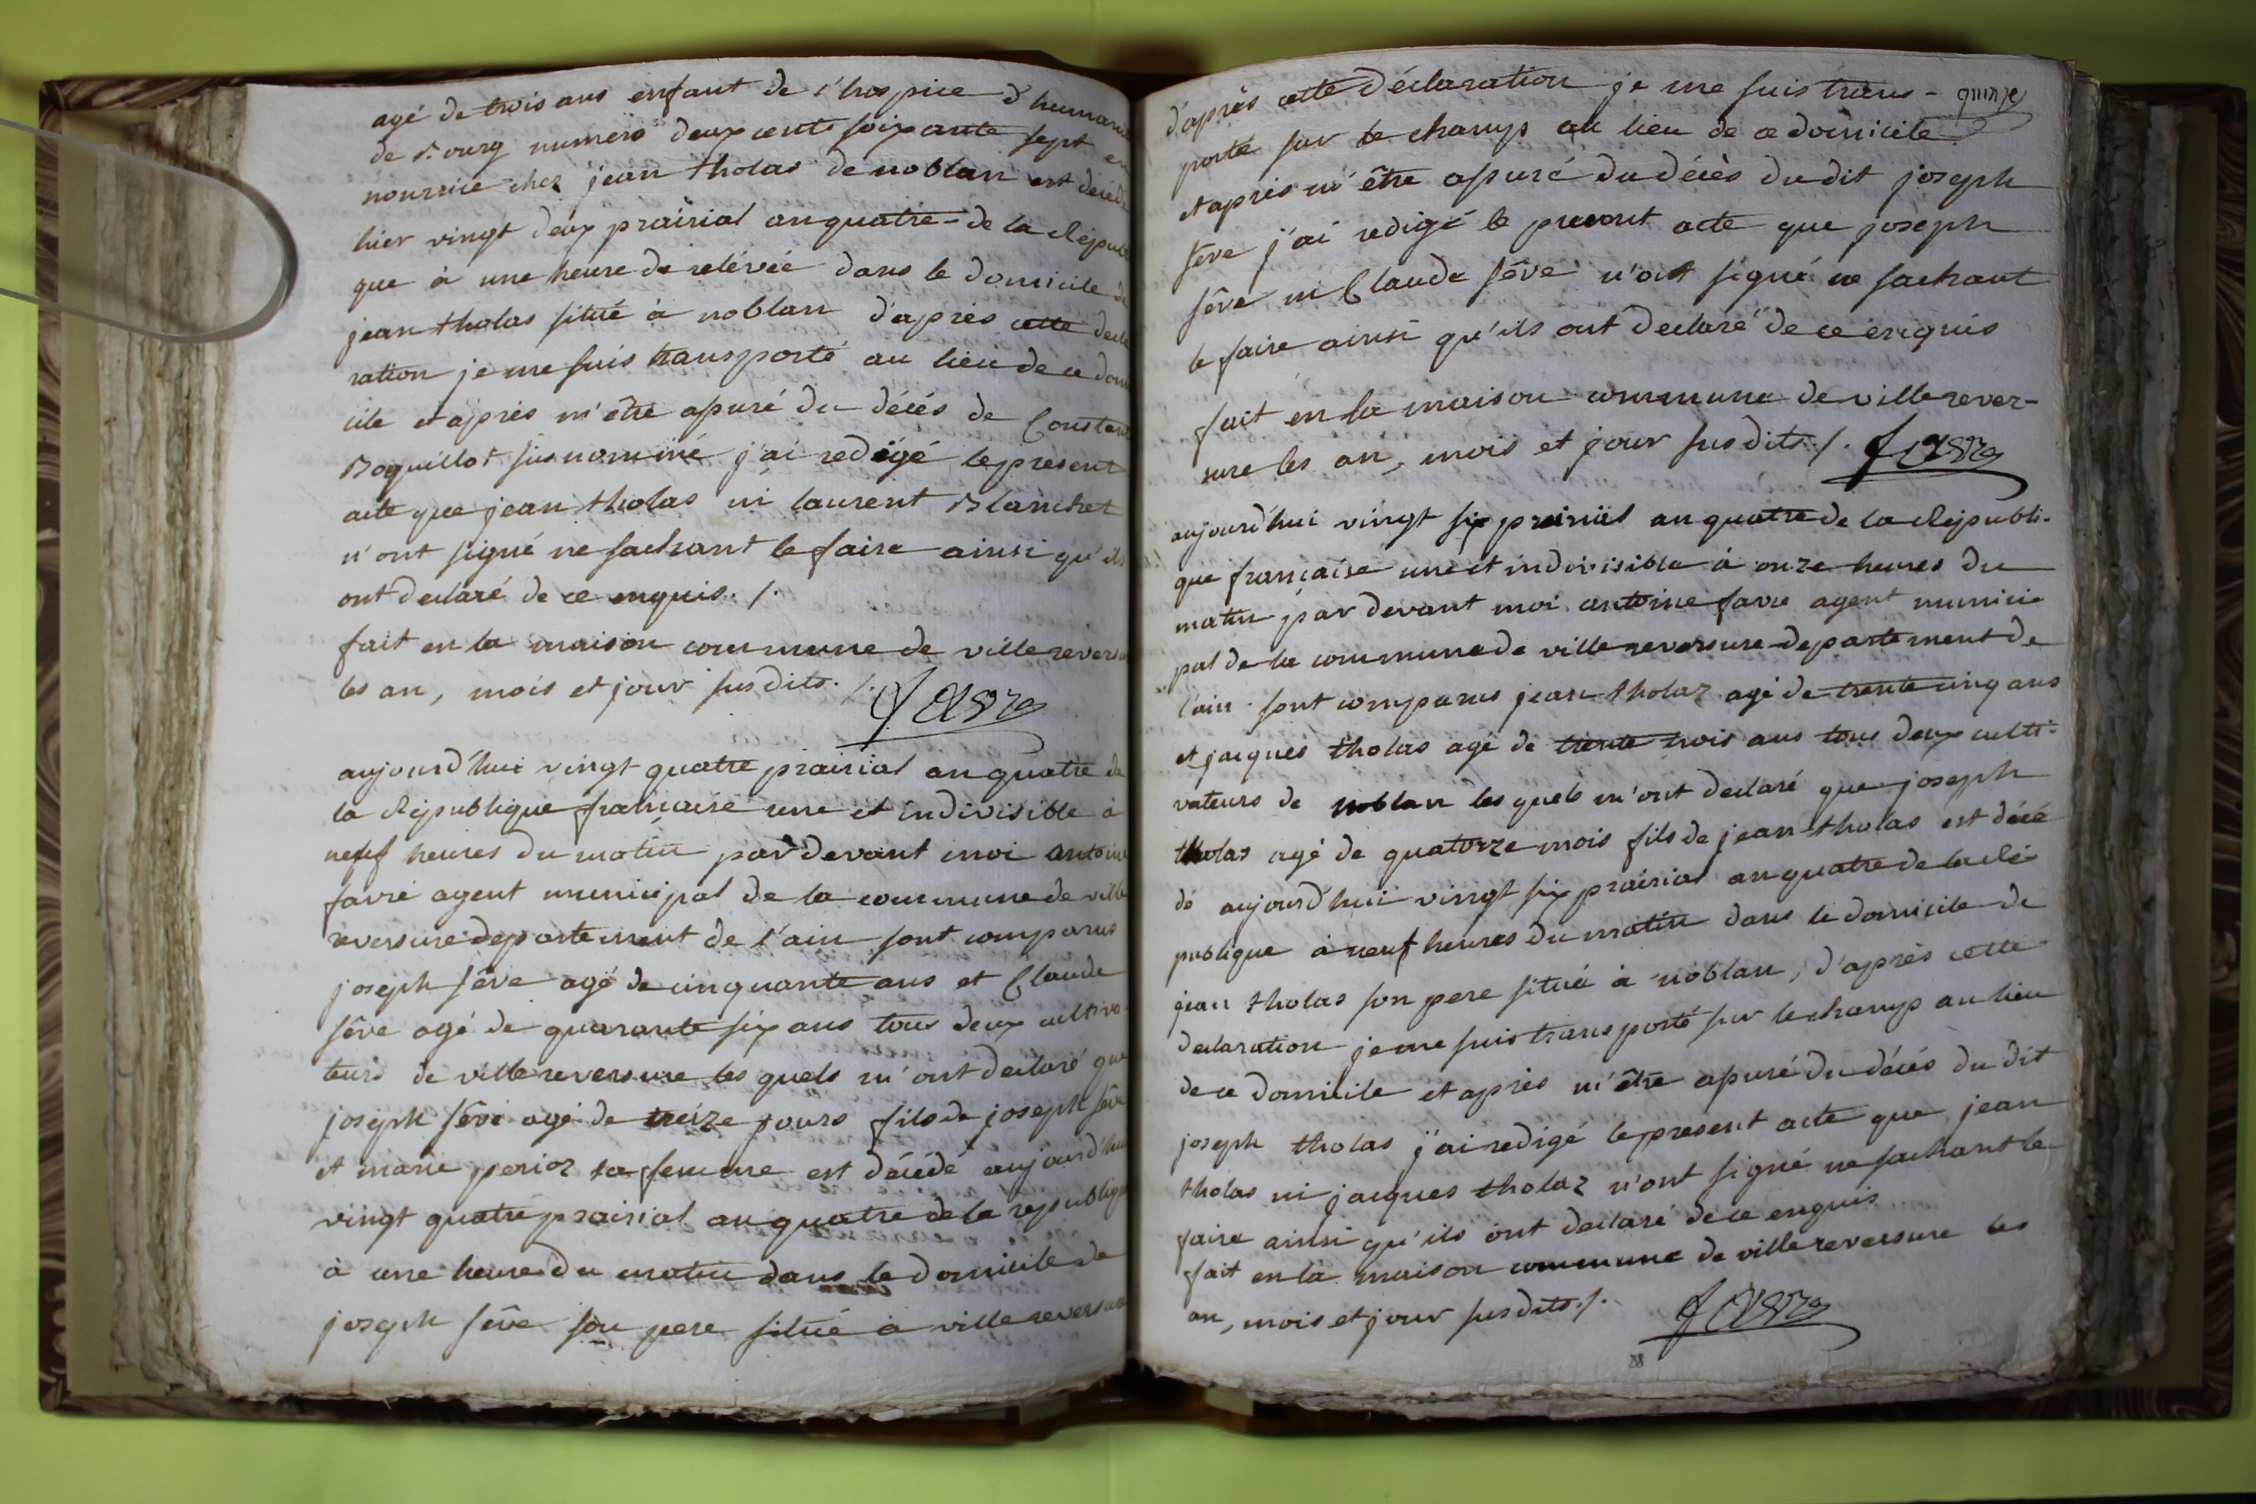 agé de trois ans enfant de l'hospice d'humani
de Bourg numero deux cents soixante sept en
nourrice chez jean tholas de noblan est décédé
hier vingt deux prairial an quatre de la Républi
que à une heure de relévée dans le domicile de
jean tholas situé à noblan d'après cette decla
ration je me suis transporté au lieu de ce domi
cile et après m'être assuré du décés de Constant
Boquillot susnommé j'ai redigé le present
acte que jean tholas ni laurent Blanchet
n'ont signé ne sachant le faire ainsi qu'ils
ont declaré de ce enquis ./.
fait en la maison commune de villereversu
les an, mois et jour susdits ./.
Favre
aujourd'hui vingt quatre prairial an quatre de
la République française une et indivisible à
neuf heures du matin pardevant moi antoine
favre agent municipal de la commune de ville
reversure departement de l'ain sont comparus
joseph sêve agé de cinquante ans et Claude
sêve agé de quarante six ans tous deux cultiva
teurs de villereversure les quels m'ont declaré que
joseph sêve agé de treize jours fils de joseph sêve
et marie perioz sa femme est décédé aujourd'hui
vingt quatre prairial an quatre de la republique
à une heure du matin dans le domicile de
joseph sêve son pere situé à villereversure
quinze
d'après cette déclaration je me suis trans-
porté sur le champs au lieu de ce domicile
et après m'être assuré du décès du dit joseph
sêve j'ai redigé le present acte que joseph
sêve ni Claude sêve n'ont signé ne sachant
le faire ainsi qu'ils ont declaré de ce enquis
fait en la maison commune de villerever-
sure les an, mois et jour susdits ./. Favre
aujourd'hui vingt six prairial an quatre de la Républi-
que française une et indivisible à onze heures du
matin par devant moi antoine favre agent munici
pal de la commune de villereversure departement de
l'ain sont comparus jean tholaz agé de trente cinq ans
et jacques tholas agé de trente trois ans tous deux culti-
vateurs de noblan les quels m'ont declaré que joseph
tholas agé de quatorze mois fils de jean tholas est décé
dé aujourd'hui vingt six prairial an quatre de la Ré
publique à neuf heures du matin dans le domicile de
jean tholas son pere situé à noblan, d'après cette
declaration je me suis transporté sur le champs au lieu
de ce domicile et après m'être assuré du décés du dit
joseph tholas j'ai redigé le present acte que jean
tholas ni jacques tholaz n'ont signé ne sachant le
faire ainsi qu'ils ont declaré de ce enquis
fait en la maison commune de villereversure les
an, mois et jour susdits ./. Favre